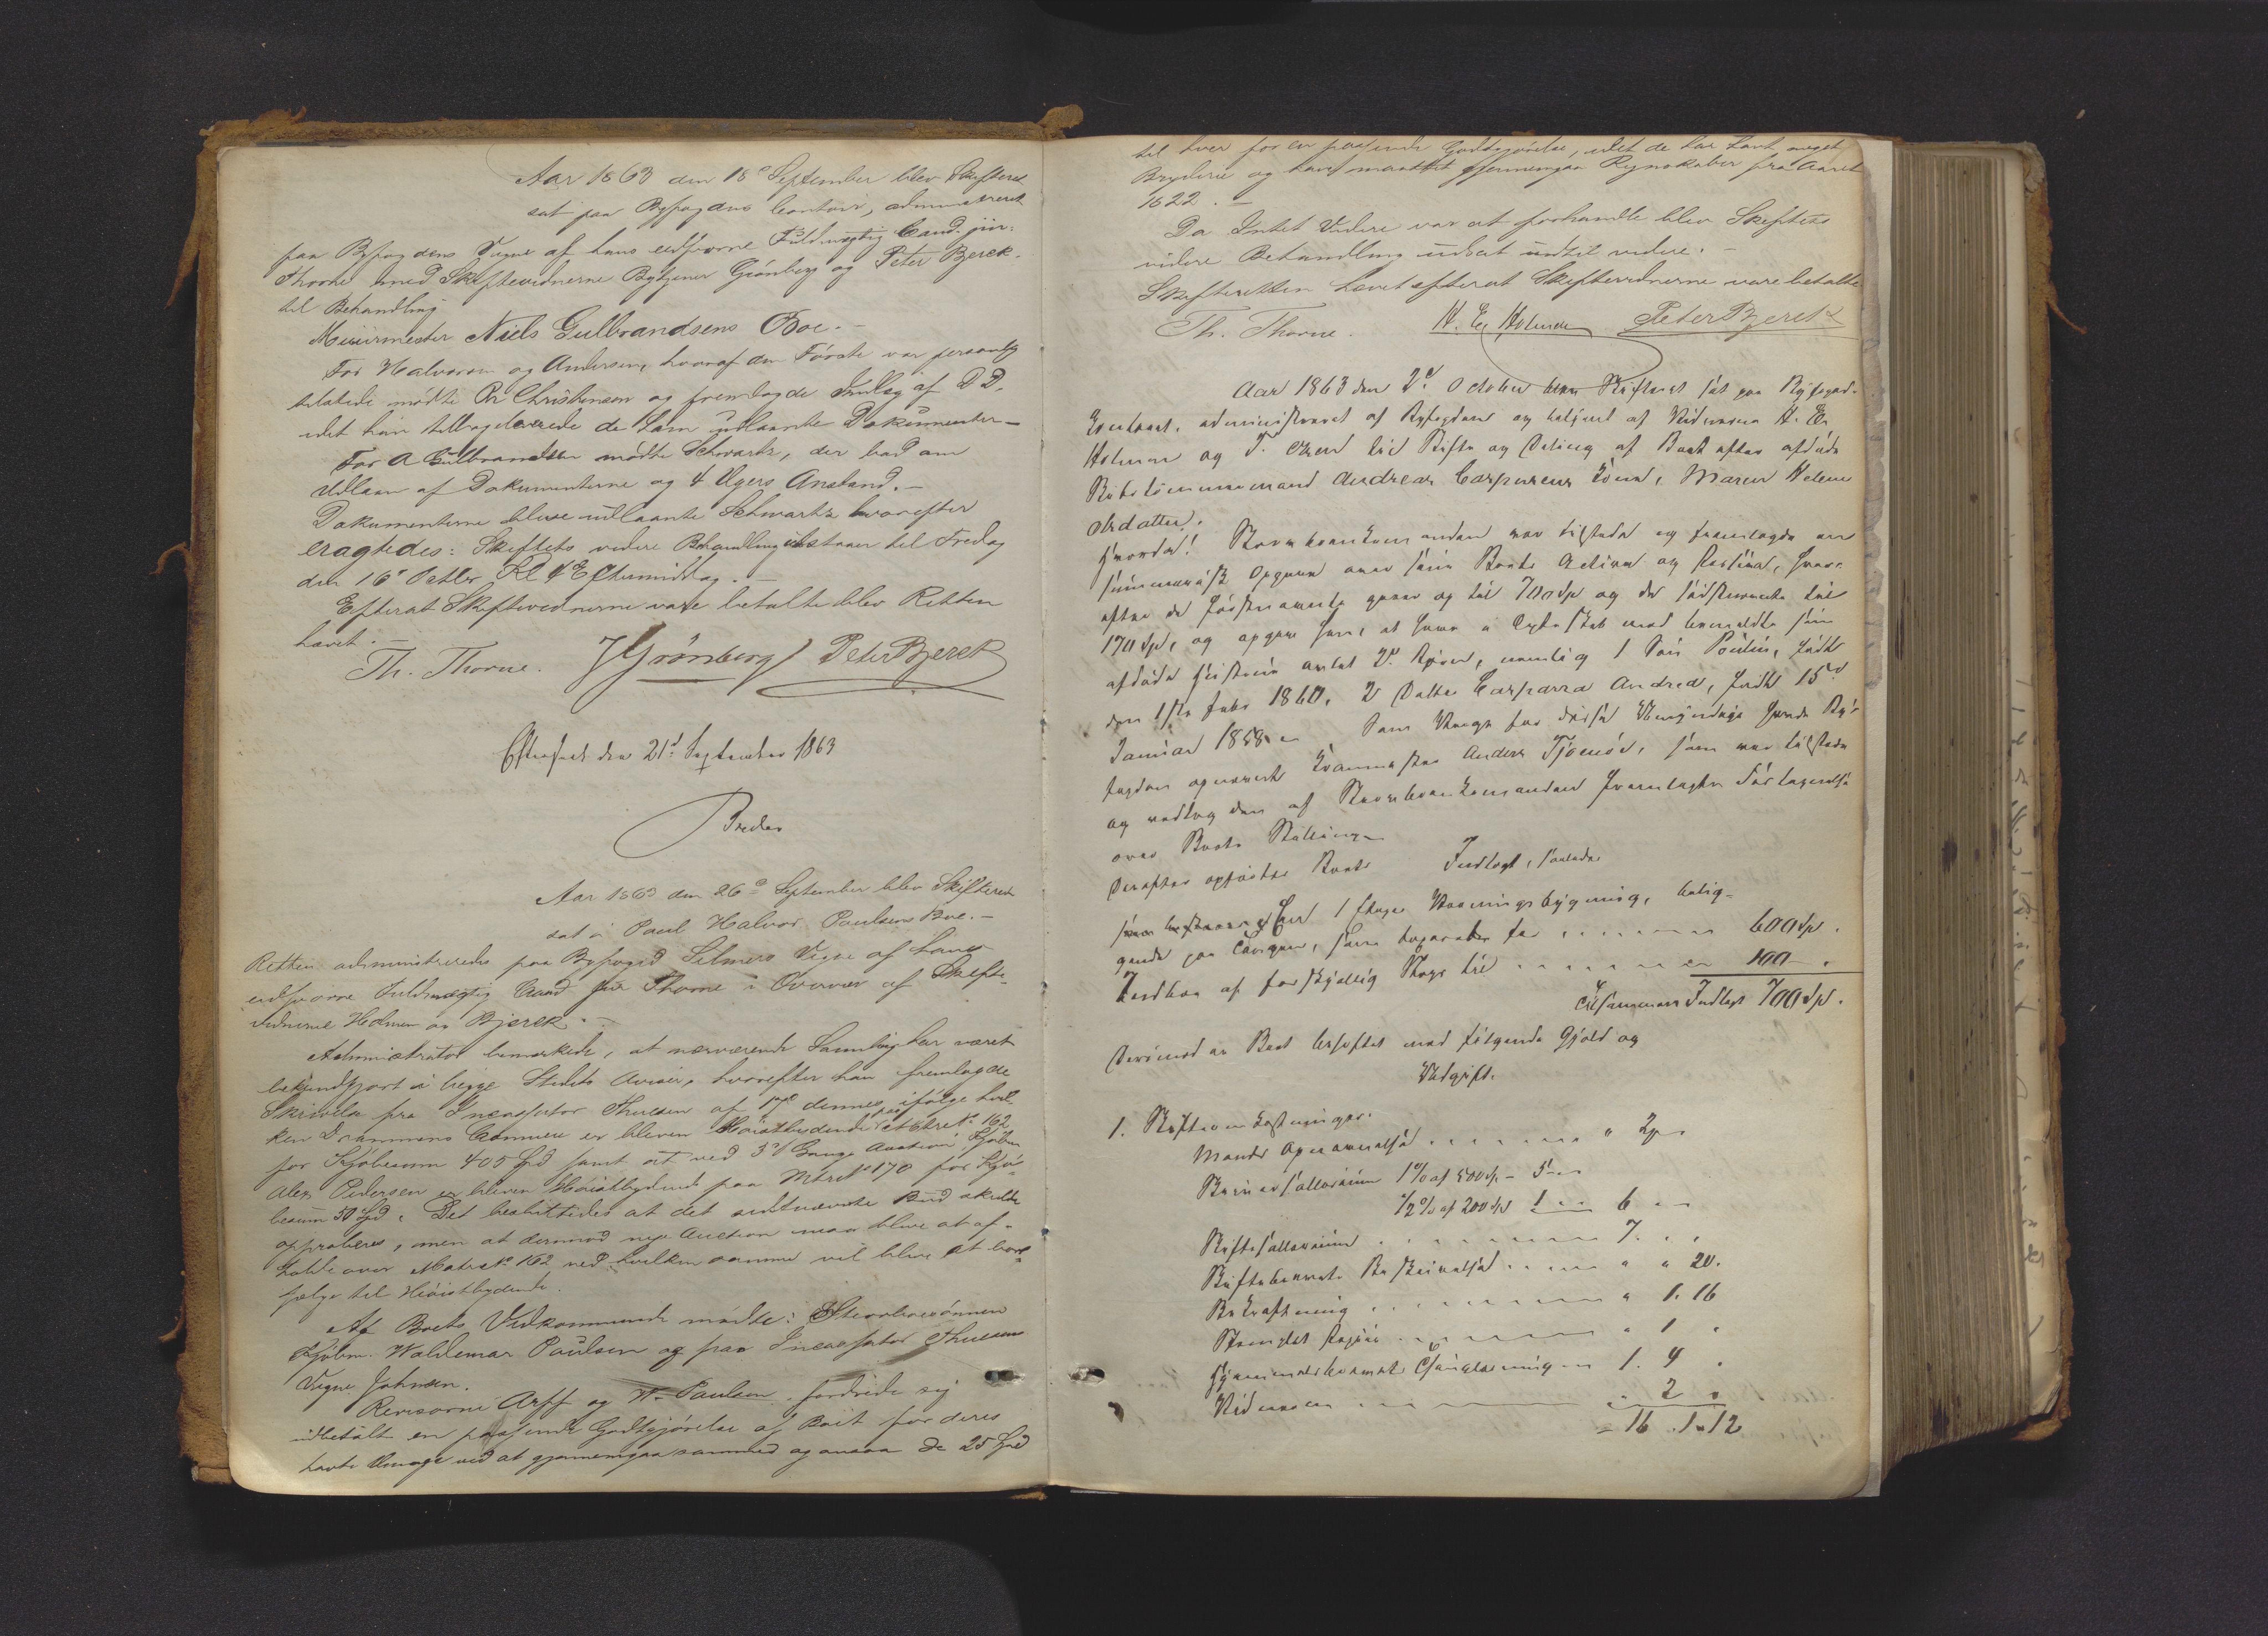 Aar 1863 den 18de September blev Skifteret
sat paa Byfogdens Contoir, administreret
paa Byfogdens Vegne af hans eedsvorne Fuldmægtig Cand. jur.
Thorne med Skiftevidnerne Bytjener Grönberg og Peter Bjerek
til Behandling
Muurmester Niels Gulbrandsens Boe. –
For Halvorsen og Andersen, hvoraf den Første var personlig
tilstede mødte Chr Christensen og fremlagde Indlæg af D.D.
idet han tilbageleverede de ham udlaante Dokumenter –
For A Gulbrandsen mødte Schwartz, der bad om
Udlaan af Dokumenterne og 4 Ugers Anstand. –
Dokumenterne bleve udlaante Schwartz hvorefter
eragtedes: Skiftets videre Behandling udstaar til Fredag
den 16de Octbr Kl 4 Eftermiddag. –
Efterat Skiftevidnerne vare betalte blev Retten
hævet. –
Th. Thorne. J Grönberg Peter Bjerek
Efterseet den 21d September 1863
Aar 1863 den 26de September blev Skifteret
sat i Paul Halvor Paulsens Boe. –
Retten administreredes paa Byfoged Selmers Vegne af hans
eedsvorne Fuldmægtig Cand jur Thorne i Overvær af Skifte-
vidnerne Holmen og Bjerek. –
Administrator bemærkede, at nærværende Samling har været
bekjendtgjort i begge Stedets Aviser, hvorefter han fremlagde
Skrivelse fra Incassator Thuesen af 17de dennes, ifølge hvil-
ken Drammens Commune er bleven Høistbydende paa Matr No 162
for Kjøbesum 405 Spd samt at ved 3die Gangs Auction Kjøbm
Alex Pedersen er bleven Høistbydende paa Matr No 170 for Kjø-
besum 50 Spd. Det besluttedes at det sidstnævnte Bud skulde
approberes, men at derimod nye Auction maa blive at af-
holde over Matr No 162 ved hvilken samme vil blive at bort-
sælge til Høistbydende.
Af Boets Vedkommende mødte: Stervboesønnen
Kjøbm. Waldemar Paulsen og paa Incassator Thuesens
Vegne Johnsen.
Revisorne Arff og W. Paulsen fordrede sig
udbetalt en passende Godtgjørelse af Boet for deres
havte Umage ved at gjennemgaa sammed og ansaa de 25 Spd
til hver for en passende Godtgjørelse, idet de har havt meget
Bryderie og have maattet gjennemgaa Regnskaber fra Aaret
1822. –
Da Intet Videre var at forhandle blev Skiftets
videre Behandling udsat indtil videre. –
Skifteretten hævet efterat Skiftevidnerne vare betalte
Th. Thorne. H. E. Holmen Peter Bjerek
Aar 1863 den 2d October blev Skifteret sat paa Byfoged-
Contoret, administreret af Byfogden og betjent af Vidnerne H. E.
Holmen og T. Olsen til Skifte og Deling af Boet efter afdøde
Andreas Caspersens Kone, Maren Helene
Olsdatter.
Hvorda! Stervboenkemanden var tilstede og fremlagde en
summarisk Opgave over sine Boets Activa og Passiva, hvor-
efter de Førstnævnte gaaer op til 700 Spd og de sidstnævnte til
170 Spd, og opgav han, at have i Ægteskab med bemeldte sin
afdøde Hustru avlet 2d Børn, nemlig 1 Søn Paulin, født
den 1ste Febr 1860, 2 Datter Casparra Andrea, født 15d
Januar 1858. – Som Værge for disse Umyndige havde By-
fogden opnævnt Anders Tjomöe, som var tilstede
og vedtog den af Stervboenkemanden fremlagte Forlagelse
over Boets Stilling –
Derefter opføres Boets Indtægt, saaledes
Een 1 Etages Vaaningsbygning, belig-
gende paa Langøen, som taxeredes for 600 Spd.
Indboe af forskjellig Slags til 100 – .
Tilsammen Indtægt 700 Spd.
Derimod er Boet beheftet med følgende Gjæld og
Udgift.
1. Skifteomkostninger.
Mands Opnævnelse " 2 –
Skriversallarium 1% af 500 Spd – 5 –
1/2% af 200 Spd 1 – 6 –
Skiftesallarium 7. . .
Skiftebrevets Beskrivelse " " 20.
Bekræftning " 1. 16
Stemplet Papir " 1 "
Hjemmelsbrevets Thinglæsning 1. 4 .
Vidnerne " 2 "
= 16 . 1 . 12